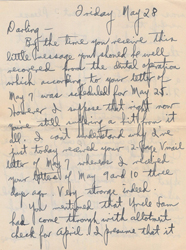 Friday May 28
Darling —
By the time you receive this
little message you should be well
recovered from the dental operation
which according to your letter of
May 7 was scheduled for May 25.
However I suppose that right now
you're still suffering a bit from it
all. I can't understand why I've
just today received your 2 page Vmail
letter of May 7 whereas I received
your letters of May 9 and 10 three
days ago. Very strange indeed.
You mentioned that Uncle Sam
had come through with allotment
check for April. I presume that it